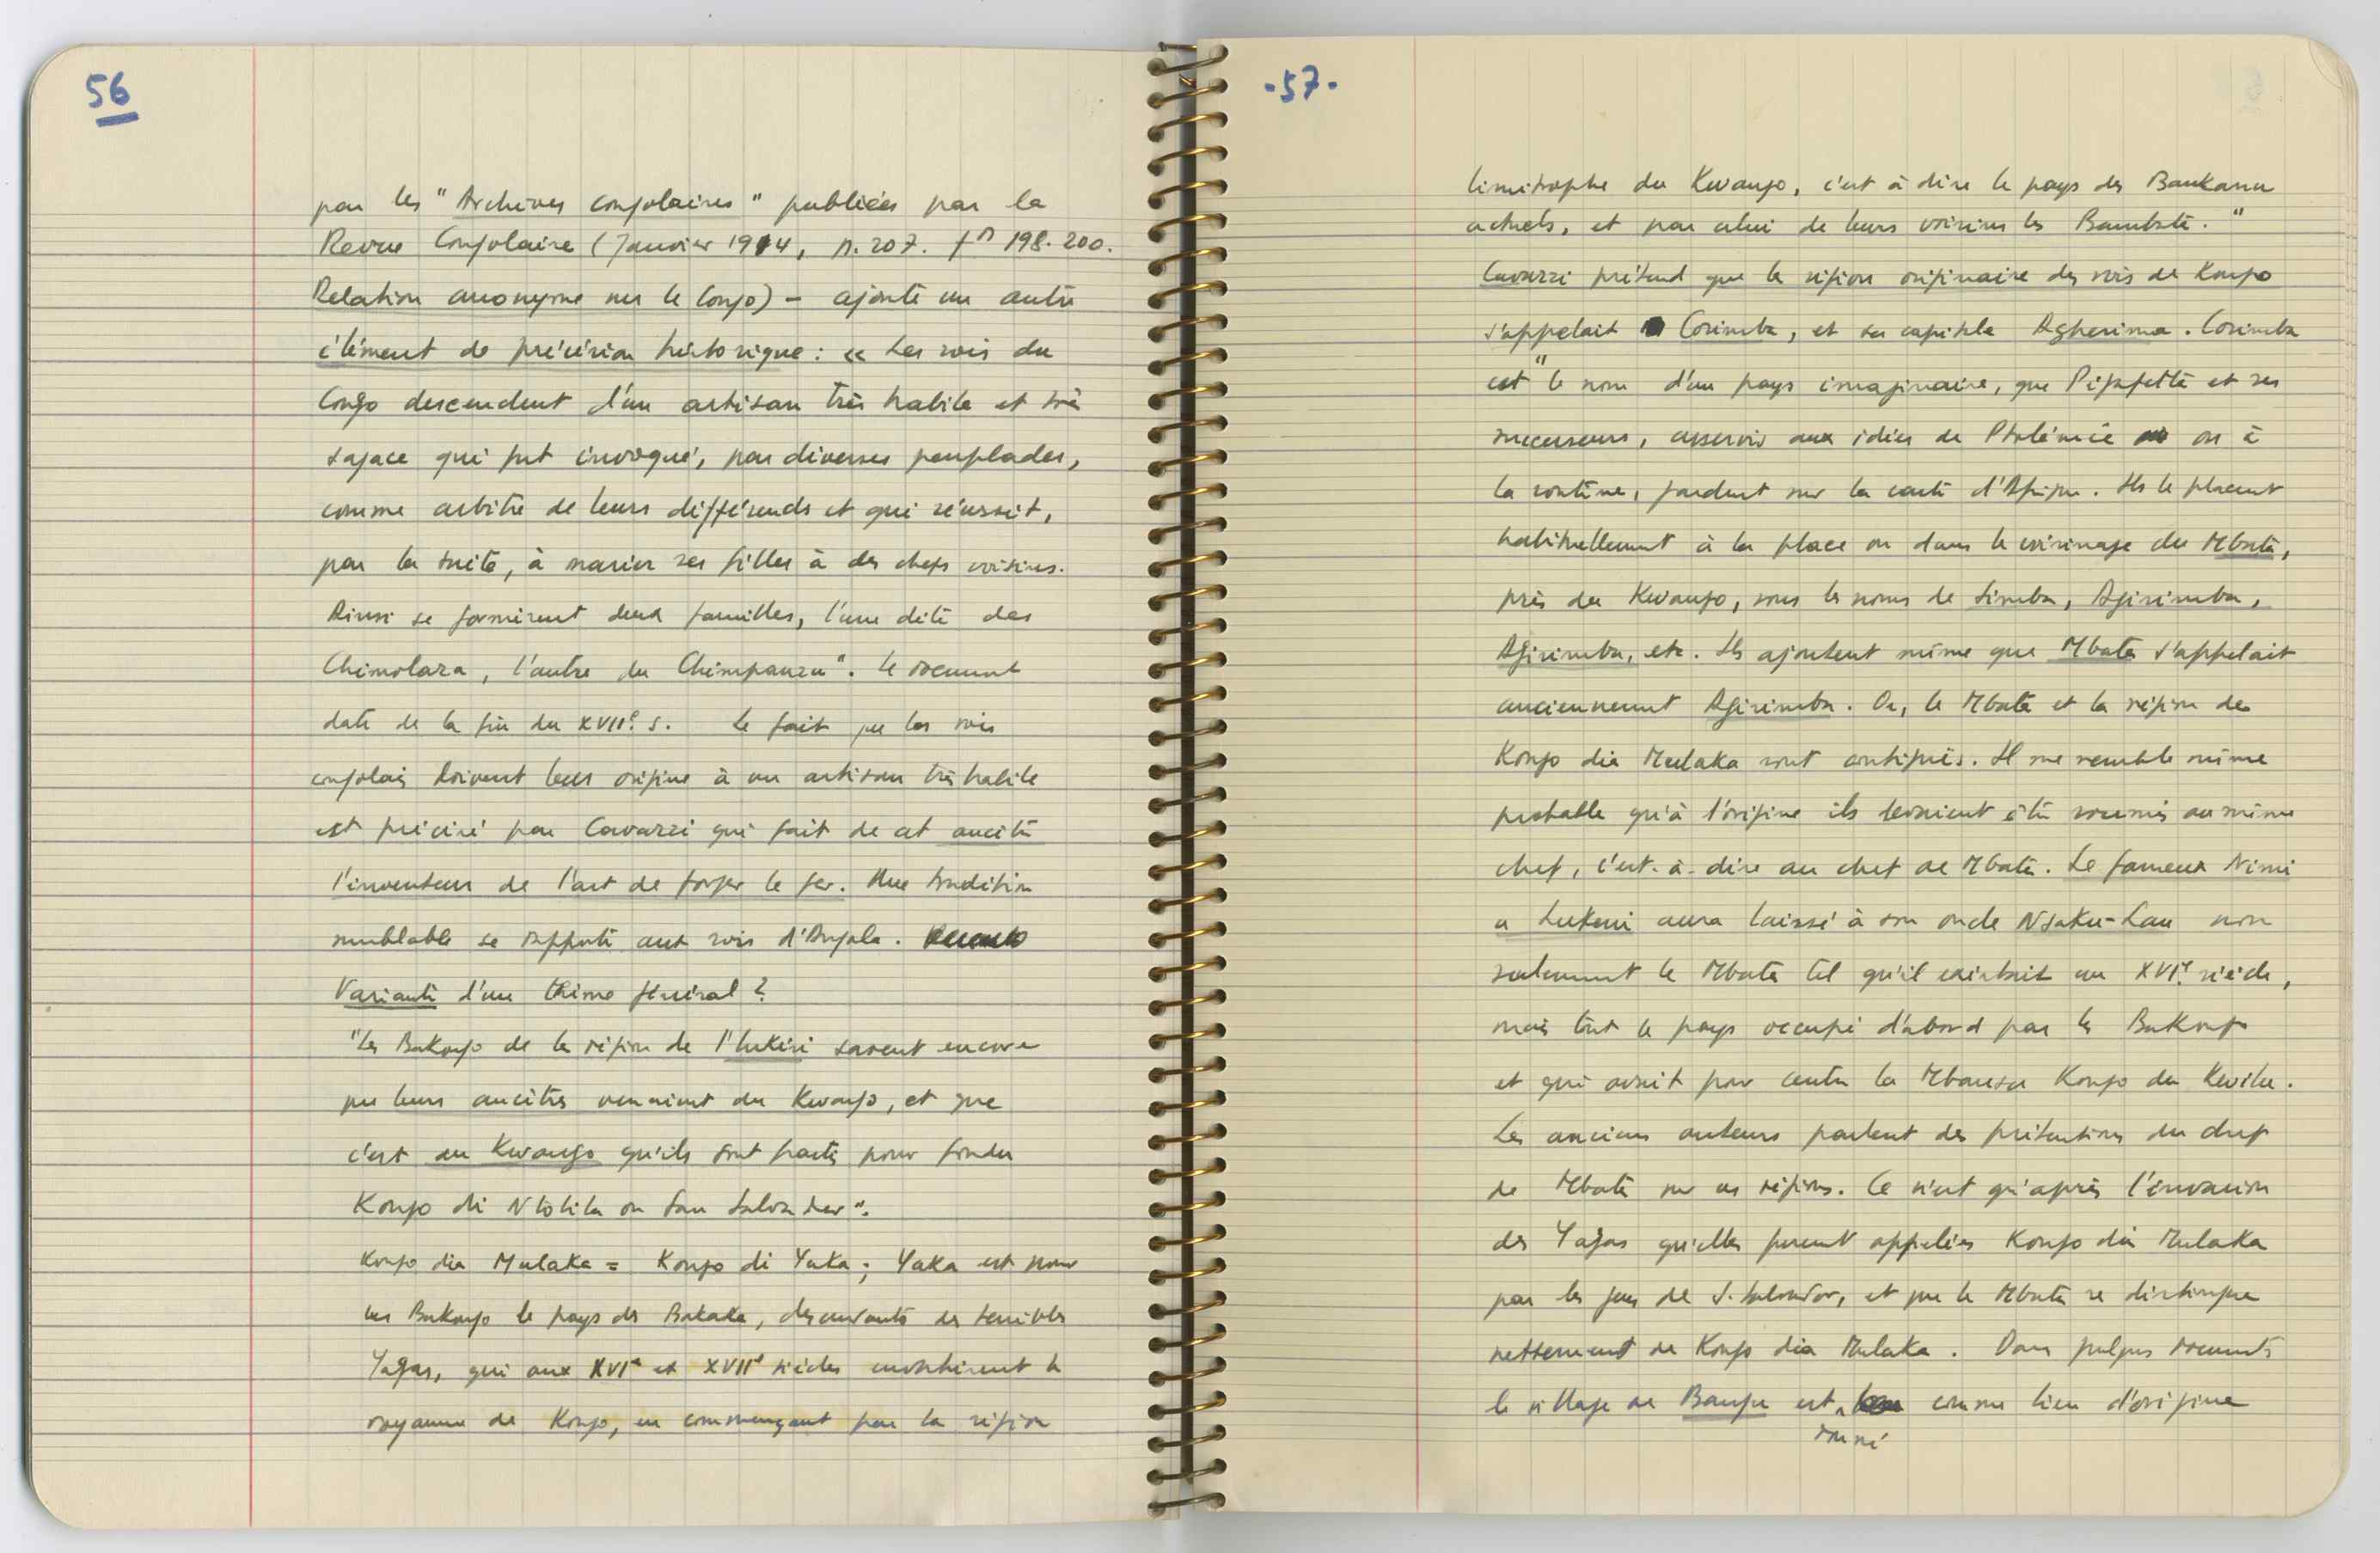 56
par les "Archives congolaises" publiées par la
Revue Congolaise (Janvier 1914, n. 207. fº 198-200.
Relation anonyme sur le Congo) - ajoute un autre
élément de précision historique : « Les rois du
Congo descendent d'un artisan très habile et très
sagace qui fut invoqué, par diverses peuplades,
comme arbitre de leurs différends et qui réussit,
par la suite, à marier ses filles à des chefs voisins.
Ainsi se formèrent deux familles, l'une dite des
Chimolaza, l'autre du Chimpanzu". Le document
date de la fin du XVIIe. s. Le fait que les rois
congolais doivent leur origine à un artisan très habile
est précisé par Cavazzi qui fait de cet ancêtre
l'inventeur de l'art de forger le fer. Une tradition
semblable se rapporte aux rois d'Angola.
Variante d'un thème général ?
"Les Bakongo de la région de l'Inkisi savent encore
que leurs ancêtres venaient du Kwango, et que
c'est du Kwango qu'ils sont partis pour fonder
Kongo di Ntotila ou San Salvador".
Kongo dia Mulaka = Kongo di Yaka ; Yaka est pour
les Bakongo le pays des Bakaka, descendants des terribles
Yagas, qui aux XVIe et XVIIe siècles envahirent le
royaume de Kongo, en commençant par la région
-57-
limitrophe du Kwango, c'est à dire le pays des Baukanu
actuels, et par celui de leurs voisins les Bambata."
Cavazzi prétend que la région originaire des rois de Kongo
s'appelait Corimba, et sa capitale Agherima. Corimba
est "le nom d'un pays imaginaire, que Pigafetta et ses
successeurs, asservis aux idées de Ptolémée ou à
la routine, gardent sur la carte d'Afrique. Ils le placent
habituellement à la place ou dans le voisinage du Mbata,
près du Kwango, sous les noms de Simba, Agisimba,
Agisimba, etc. Ils ajoutent même que Mbata s'appelait
anciennement Agisimba. Or, le Mbata et la région de
Kongo dia Mulaka sont contiguës. Il me semble même
probable qu'à l'origine ils devaient être soumis au même
chef, c'est-à-dire au chef de Mbata. Le fameux Nimi
a Lukeni aura laissé à son oncle Nsaku-Lau non
seulement le Mbata tel qu'il existait au XVIe. siècle,
mais tout le pays occupé d'abord par les Bakongo
et qui avait pour centre la Mbanza Kongo du Kwilu.
Les anciens auteurs parlent des prétentions du chef
de Mbata sur ces régions. Ce n'est qu'après l'invasion
des Yagas qu'elles furent appelées Kongo dia Mulaka
par les gens de S. Salvador, et que le Mbata se distingue
nettement de Kongo dia Mulaka. Dans quelques documents
le village de Bangu est donné comme lieu d'origine